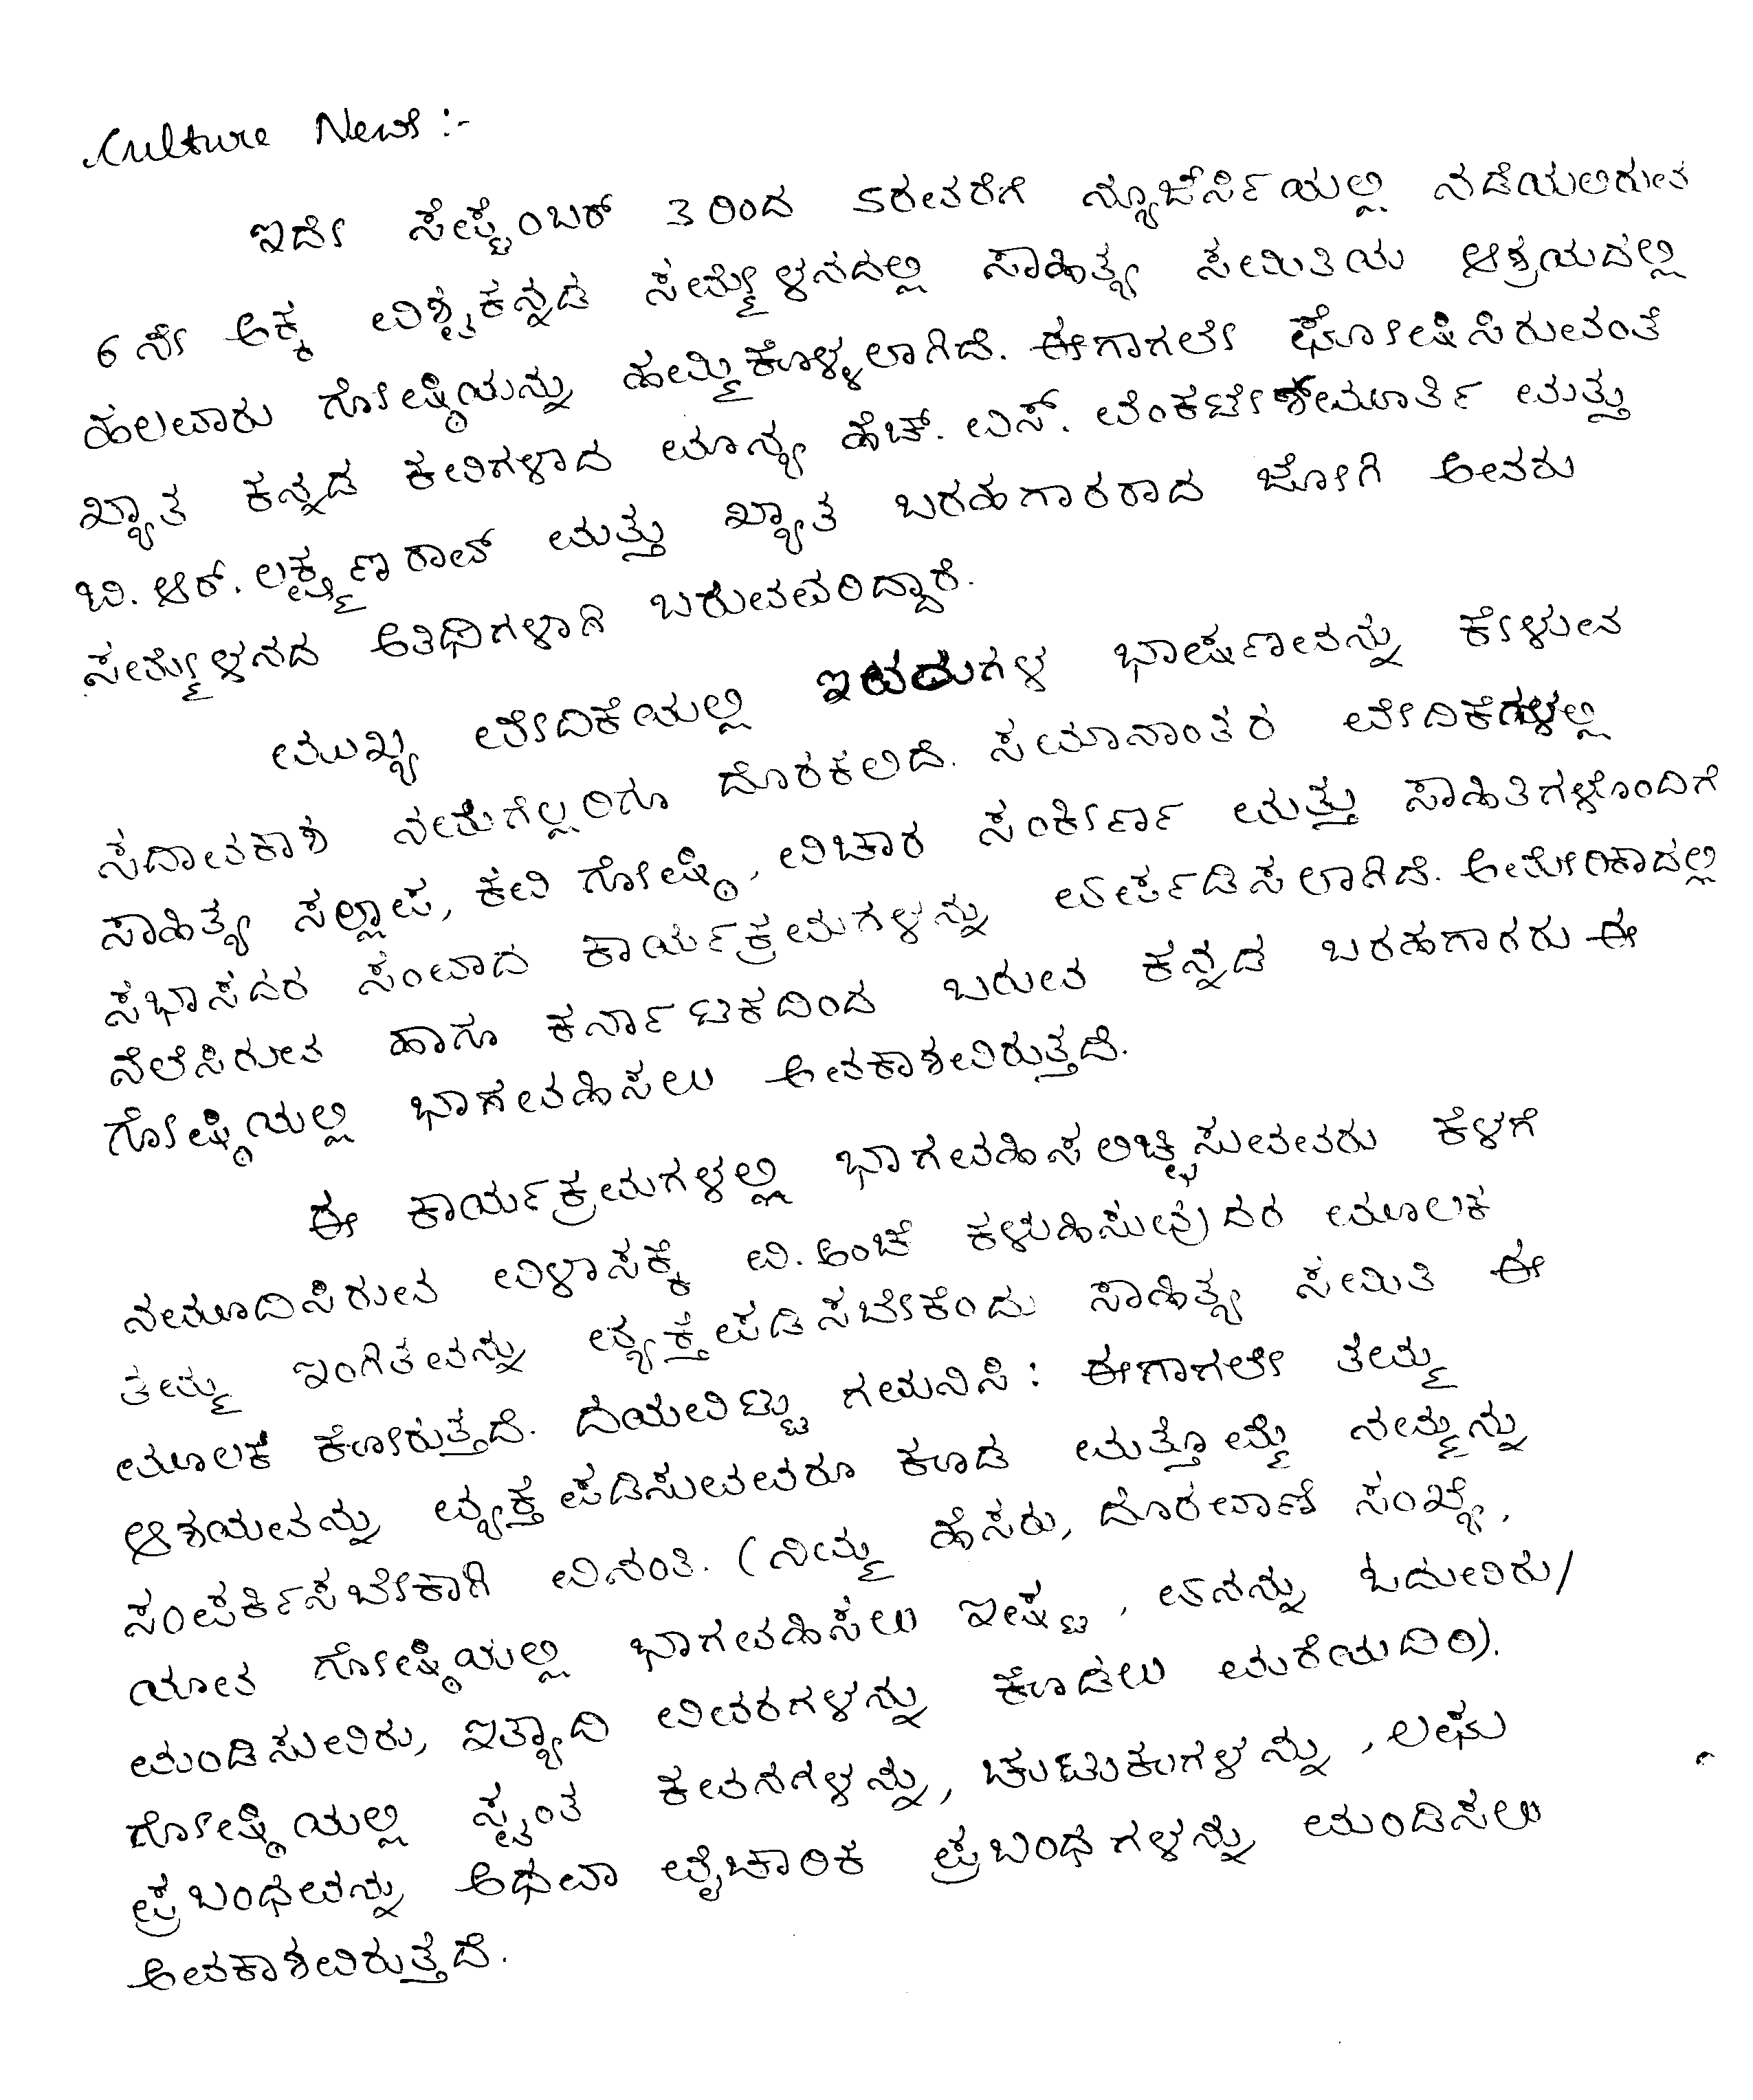 Culture News :-
ಇದೇ ಸೆಪ್ಟೆಂಬರ್ 3 ರಿಂದ 5ರವರೆಗೆ ನ್ಯೂಜೆರ್ಸಿಯಲ್ಲಿ ನಡೆಯಲಿರುವ
6 ನೇ ಅಕ್ಕ ವಿಶ್ವಕನ್ನಡ ಸಮ್ಮೇಳನದಲ್ಲಿ ಸಾಹಿತ್ಯ ಸಮಿತಿಯ ಆಶ್ರಯದಲ್ಲಿ
ಹಲವಾರು ಗೋಷ್ಠಿಯನ್ನು ಹಮ್ಮಿಕೊಳ್ಳಲಾಗಿದೆ. ಈಗಾಗಲೇ ಘೋಷಿಸಿರುವಂತೆ
ಖ್ಯಾತ ಕನ್ನಡ ಕವಿಗಳಾದ ಮಾನ್ಯ ಹೆಚ್. ಎಸ್. ವೆಂಕಟೇಶಮೂರ್ತಿ ಮತ್ತು
ಬಿ. ಆರ್. ಲಕ್ಷ್ಮಣರಾವ್ ಮತ್ತು ಖ್ಯಾತ ಬರಹಗಾರರಾದ ಜೋಗಿ ಅವರು
ಸಮ್ಮೇಳನದ ಅತಿಥಿಗಳಾಗಿ ಬರುವವರಿದ್ದಾರೆ.
ಮುಖ್ಯ ವೇದಿಕೆಯಲ್ಲಿ ಇವರುಗಳ ಭಾಷಣವನ್ನು ಕೇಳುವ
ಸದಾವಕಾಶ ನಮಗೆಲ್ಲರಿಗೂ ದೊರಕಲಿದೆ. ಸಮಾನಾಂತರ ವೇದಿಕೆಗಳಲ್ಲಿ
ಸಾಹಿತ್ಯ ಸಲ್ಲಾಪ, ಕವಿ ಗೋಷ್ಠಿ, ವಿಚಾರ ಸಂಕೀರ್ಣ ಮತ್ತು ಸಾಹಿತಿಗಳೊಂದಿಗೆ
ಸಭಾಸದರ ಸಂವಾದ ಕಾರ್ಯಕ್ರಮಗಳನ್ನು ಏರ್ಪಡಿಸಲಾಗಿದೆ. ಅಮೇರಿಕಾದಲ್ಲಿ
ನೆಲೆಸಿರುವ ಹಾಗೂ ಕರ್ನಾಟಕದಿಂದ ಬರುವ ಕನ್ನಡ ಬರಹಗಾರರು ಈ
ಗೋಷ್ಠಿಯಲ್ಲಿ ಭಾಗವಹಿಸಲು ಅವಕಾಶವಿರುತ್ತದೆ.
ಈ ಕಾರ್ಯಕ್ರಮಗಳಲ್ಲಿ ಭಾಗವಹಿಸಲಿಚ್ಛಿಸುವವರು ಕೆಳಗೆ
ನಮೂದಿಸಿರುವ ವಿಳಾಸಕ್ಕೆ ವಿ. ಅಂಚೆ ಕಳುಹಿಸುವುದರ ಮೂಲಕ
ತಮ್ಮ ಇಂಗಿತವನ್ನು ವ್ಯಕ್ತಪಡಿಸಬೇಕೆಂದು ಸಾಹಿತ್ಯ ಸಮಿತಿ ಈ
ಮೂಲಕ ಕೋರುತ್ತದೆ. ದಯವಿಟ್ಟು ಗಮನಿಸಿ : ಈಗಾಗಲೇ ತಮ್ಮ
ಆಶಯವನ್ನು ವ್ಯಕ್ತಪಡಿಸುವವರೂ ಕೂಡ ಮತ್ತೊಮ್ಮೆ ನಮ್ಮನ್ನು
ಸಂಪರ್ಕಿಸಬೇಕಾಗಿ ವಿನಂತಿ. (ನಿಮ್ಮ ಹೆಸರು, ದೊರವಾಣಿ ಸಂಖ್ಯೆ,
ಯಾವ ಗೋಷ್ಠಿಯಲ್ಲಿ ಭಾಗವಹಿಸಲು ಇಷ್ಟ, ಏನನ್ನು ಓದುವಿರು/
ಮಂಡಿಸುವಿರು, ಇತ್ಯಾದಿ ವಿವರಗಳನ್ನು ಕೊಡಲು ಮರೆಯದಿರಿ).
ಗೋಷ್ಠಿಯಲ್ಲಿ ಸ್ವಂತ ಕವನಗಳನ್ನು, ಚುಟುಕುಗಳನ್ನು, ಲಘು
ಪ್ರಬಂಧವನ್ನು ಅಥವಾ ವೈಚಾರಿಕ ಪ್ರಬಂಧಗಳನ್ನು ಮಂಡಿಸಲು
ಅವಕಾಶವಿರುತ್ತದೆ.